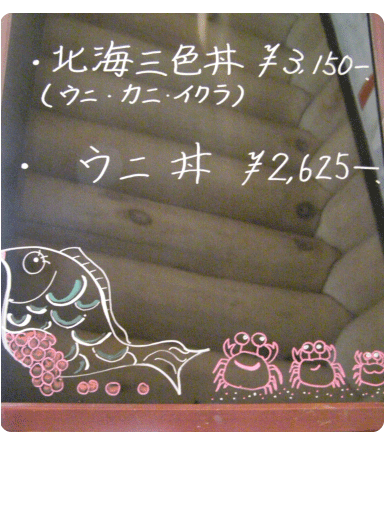 ・北海三色丼 ¥3,150-
(ウニ・カニ・イクラ)
・ウニ丼 ¥2,625-